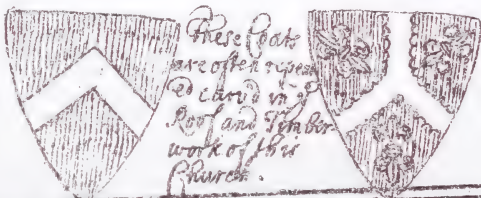 These Coats
are often repea-
ted carv'd in yͤ
Roof and Timber
work of this
Church.